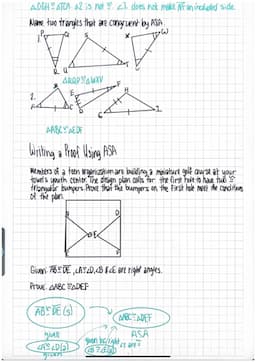 △DEH ≅ △FGA ∠2 is not ≅ ∠3 does not make an included side
Name two triangles that are congruent by ASA.
1.
P
Q
S
X
W
U
T
2.
E
F
H
△ABC ≅ △DEF
Writing a Proof Using ASA
Members of a teen organization are building a miniature golf course at your
town's youth center. The design plan calls for the first hole to have two ≅
triangular bumpers. Prove that the bumpers on the first hole meet the conditions
of the plan.
D
E
Given: AB ≅ DE, ∠A ≅ ∠D, ∠B & ∠E are right angles.
Prove: △ABC ≅ △DEF
AB ≅ DE (S)
given
△ABC ≅ △DEF
ASA
∠A ≅ ∠D (A)
given